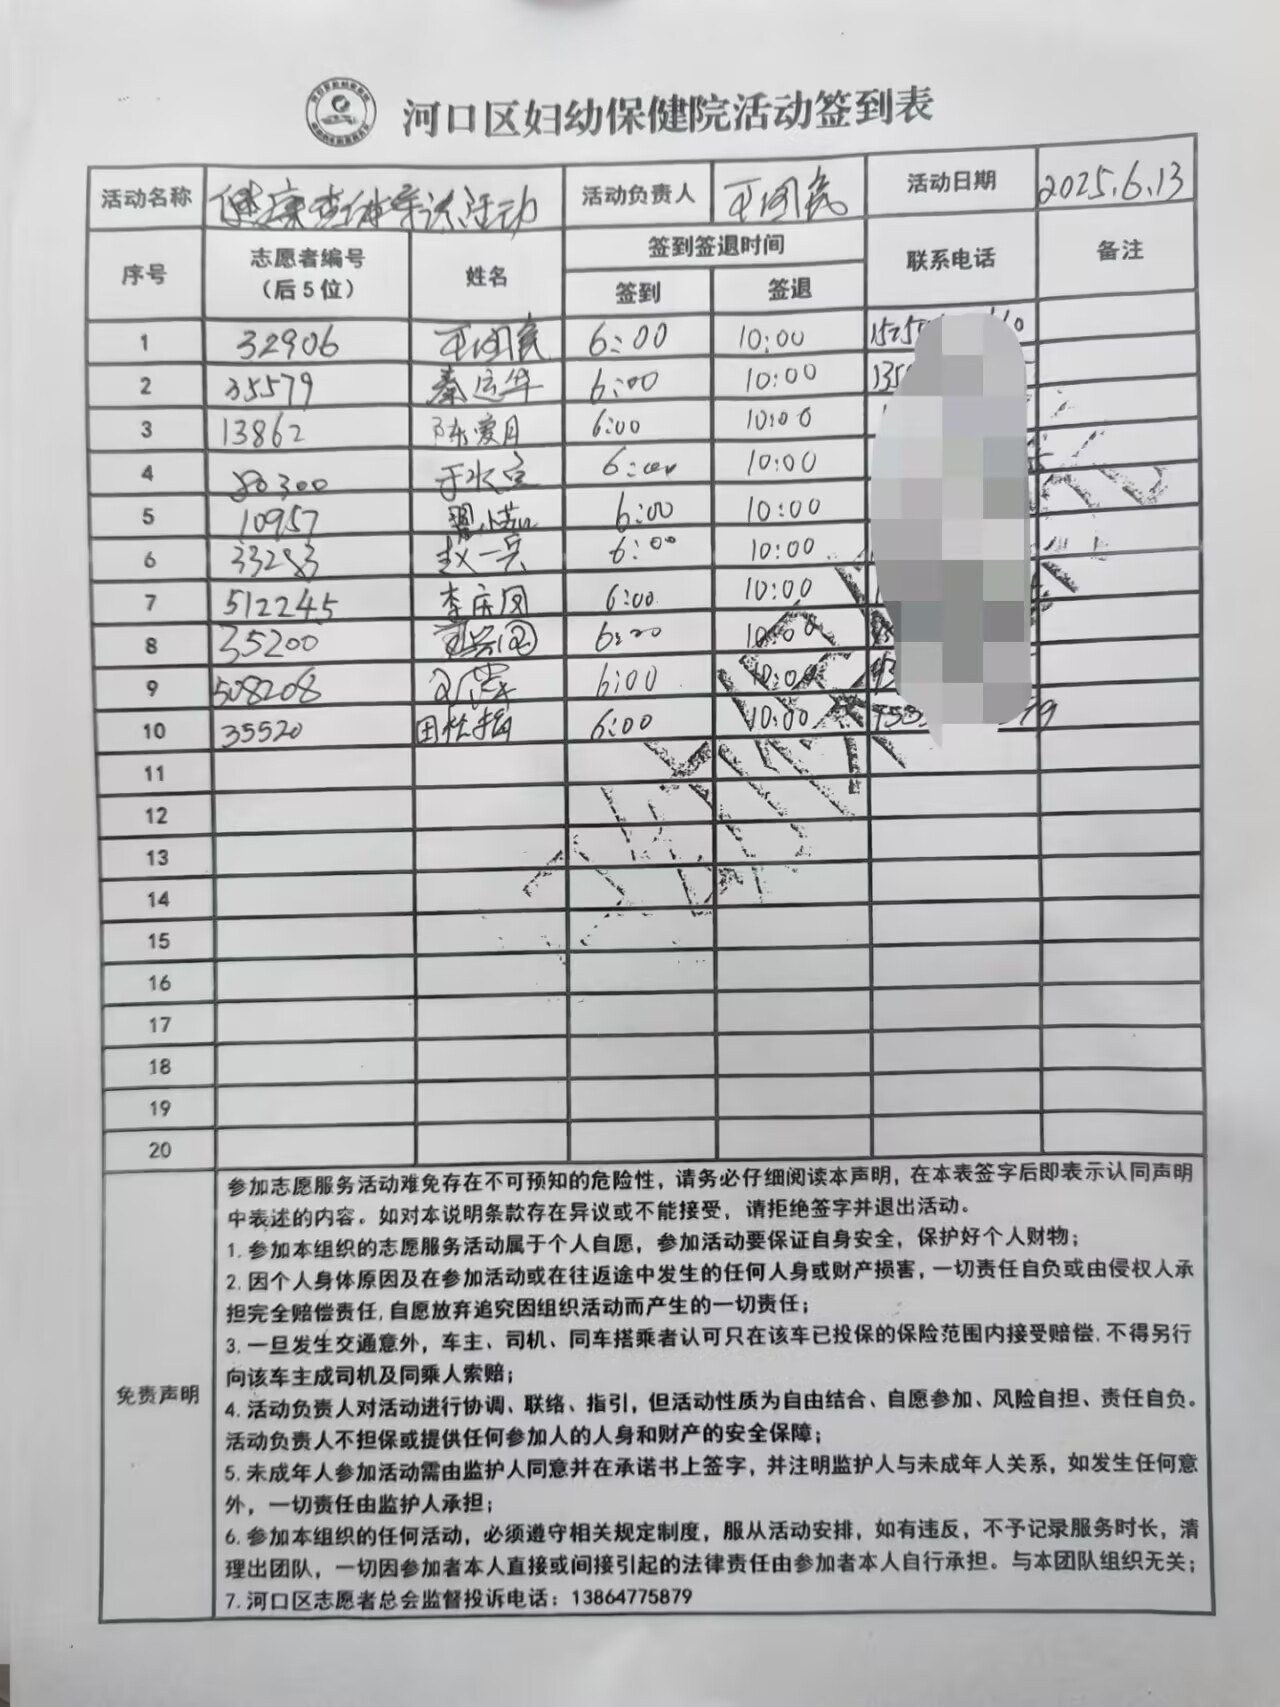 河口区妇幼保健院活动签到表
活动名称 健康查体导诊活动 活动负责人 王国民 活动日期 2025.6.13
序号 志愿者编号（后5位） 姓名 签到签退时间 联系电话 备注
签到 签退
1 32906 王国民 6:00 10:00
2 35579 秦运华 6:00 10:00
3 13862 陈爱月 6:00 10:00
4 80300 于水宝 6:00 10:00
5 10957 6:00 10:00
6 33283 赵一兵 6:00 10:00
7 512245 李庆国 6:00 10:00
8 35200 10:00
9 508208 6:00 10:00
10 35520 田 6:00 10:00
11
12
13
14
15
16
17
18
19
20
免责声明
参加志愿服务活动难免存在不可预知的危险性，请务必仔细阅读本声明，在本表签字后即表示认同声明
中表述的内容。如对本说明条款存在异议或不能接受，请拒绝签字并退出活动。
1. 参加本组织的志愿服务活动属于个人自愿，参加活动要保证自身安全，保护好个人财物；
2. 因个人身体原因及在参加活动或在往返途中发生的任何人身或财产损害，一切责任自负或由侵权人承
担完全赔偿责任,自愿放弃追究因组织活动而产生的一切责任；
3. 一旦发生交通意外，车主、司机、同车搭乘者认可只在该车已投保的保险范围内接受赔偿,不得另行
向该车主成司机及同乘人索赔；
4. 活动负责人对活动进行协调、联络、指引，但活动性质为自由结合、自愿参加、风险自担、责任自负。
活动负责人不担保或提供任何参加人的人身和财产的安全保障；
5. 未成年人参加活动需由监护人同意并在承诺书上签字，并注明监护人与未成年人关系，如发生任何意
外，一切责任由监护人承担；
6. 参加本组织的任何活动，必须遵守相关规定制度，服从活动安排，如有违反，不予记录服务时长，清
理出团队，一切因参加者本人直接或间接引起的法律责任由参加者本人自行承担。与本团队组织无关；
7. 河口区志愿者总会监督投诉电话：13864775879